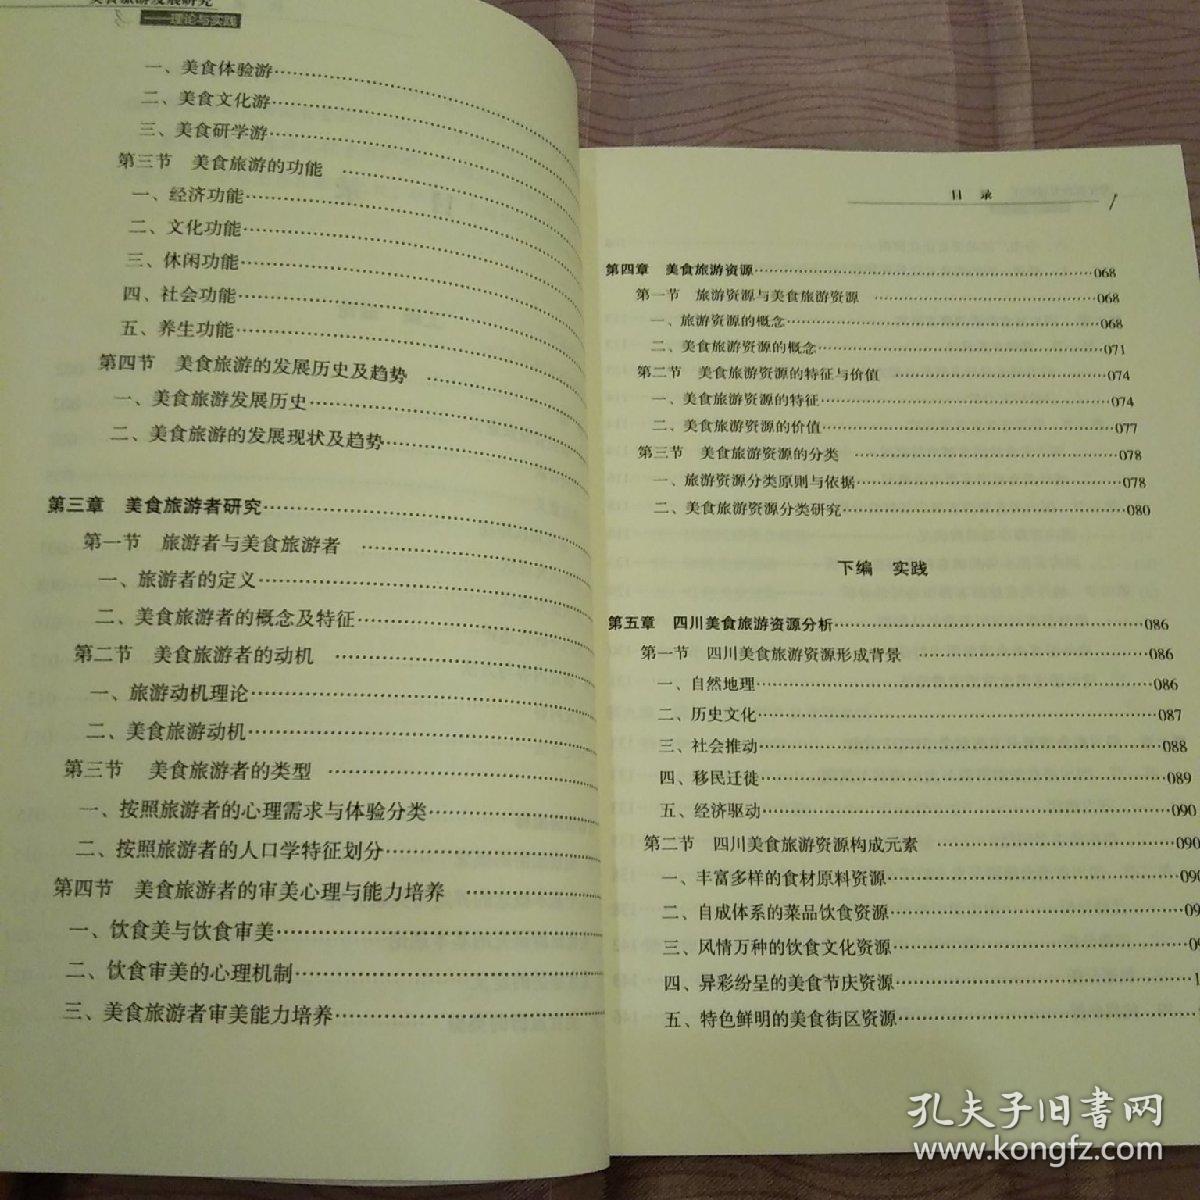 美食旅游发展研究
——理论与实践
一、美食体验游
二、美食文化游
三、美食研学游
第三节　美食旅游的功能
一、经济功能
二、文化功能
三、休闲功能
四、社会功能
五、养生功能
第四节　美食旅游的发展历史及趋势
一、美食旅游发展历史
二、美食旅游的发展现状及趋势
第三章　美食旅游者研究
第一节　旅游者与美食旅游者
一、旅游者的定义
二、美食旅游者的概念及特征
第二节　美食旅游者的动机
一、旅游动机理论
二、美食旅游动机
第三节　美食旅游者的类型
一、按照旅游者的心理需求与体验分类
二、按照旅游者的人口学特征划分
第四节　美食旅游者的审美心理与能力培养
一、饮食美与饮食审美
二、饮食审美的心理机制
三、美食旅游者审美能力培养
目　录
第四章　美食旅游资源……068
第一节　旅游资源与美食旅游资源……068
一、旅游资源的概念……068
二、美食旅游资源的概念……071
第二节　美食旅游资源的特征与价值……074
一、美食旅游资源的特征……074
二、美食旅游资源的价值……077
第三节　美食旅游资源的分类……078
一、旅游资源分类原则与依据……078
二、美食旅游资源分类研究……080
下编　实践
第五章　四川美食旅游资源分析……086
第一节　四川美食旅游资源形成背景……086
一、自然地理……086
二、历史文化……087
三、社会推动……088
四、移民迁徙……089
五、经济驱动……090
第二节　四川美食旅游资源构成元素……090
一、丰富多样的食材原料资源……090
二、自成体系的菜品饮食资源……09
三、风情万种的饮食文化资源……09
四、异彩纷呈的美食节庆资源……1
五、特色鲜明的美食街区资源
孔夫子旧书网
www.kongfz.com